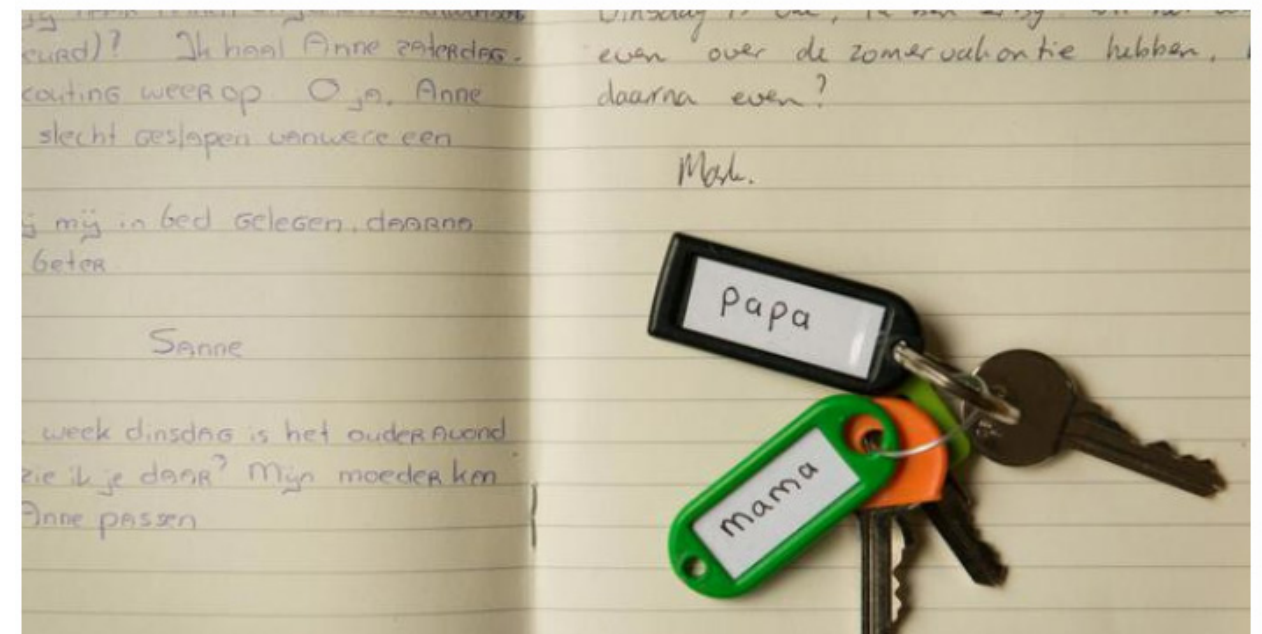 eurd)? Ik haal Anne zaterdag.
couting weer op O ja, Anne
slecht geslapen vanwege een
j mij in bed gelegen, daarna
beter
Sanne
week dinsdag is het ouderavond
zie ik je daar? Mijn moeder kan
Anne passen
Dinsdag is
even over de zomervakantie hebben,
daarna even?
Mark.
papa
mama